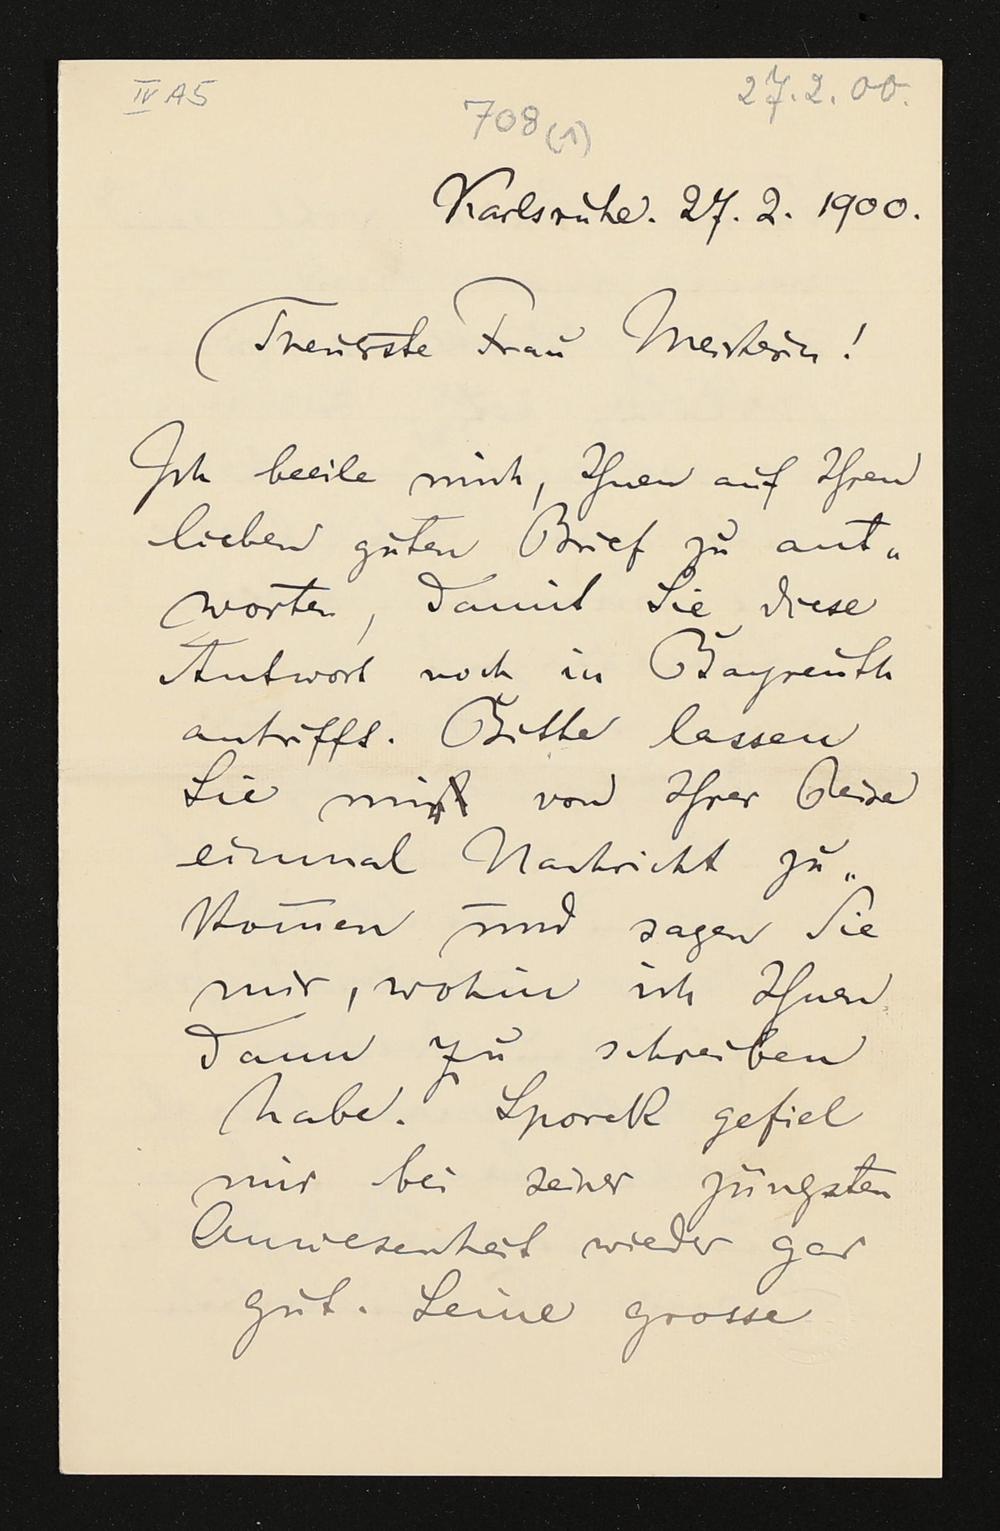 IV A5
27.2.00.
708 (1)
Karlsruhe. 27. 2. 1900.
Theuerste Frau Meisterin!
Ich beeile mich, Ihnen auf Ihren
lieben guten Brief zu ant„
worten, damit Sie diese
Antwort noch in Bayreuth
antrifft. Bitte lassen
Sie mir von Ihrer Reise
einmal Nachricht zu„
kom̅en und sagen Sie
mir, wohin ich Ihnen
dann zu schreiben
habe. Sporck gefiel
mir bei seiner jüngsten
Anwesenheit wieder gar
gut. Seine grosse